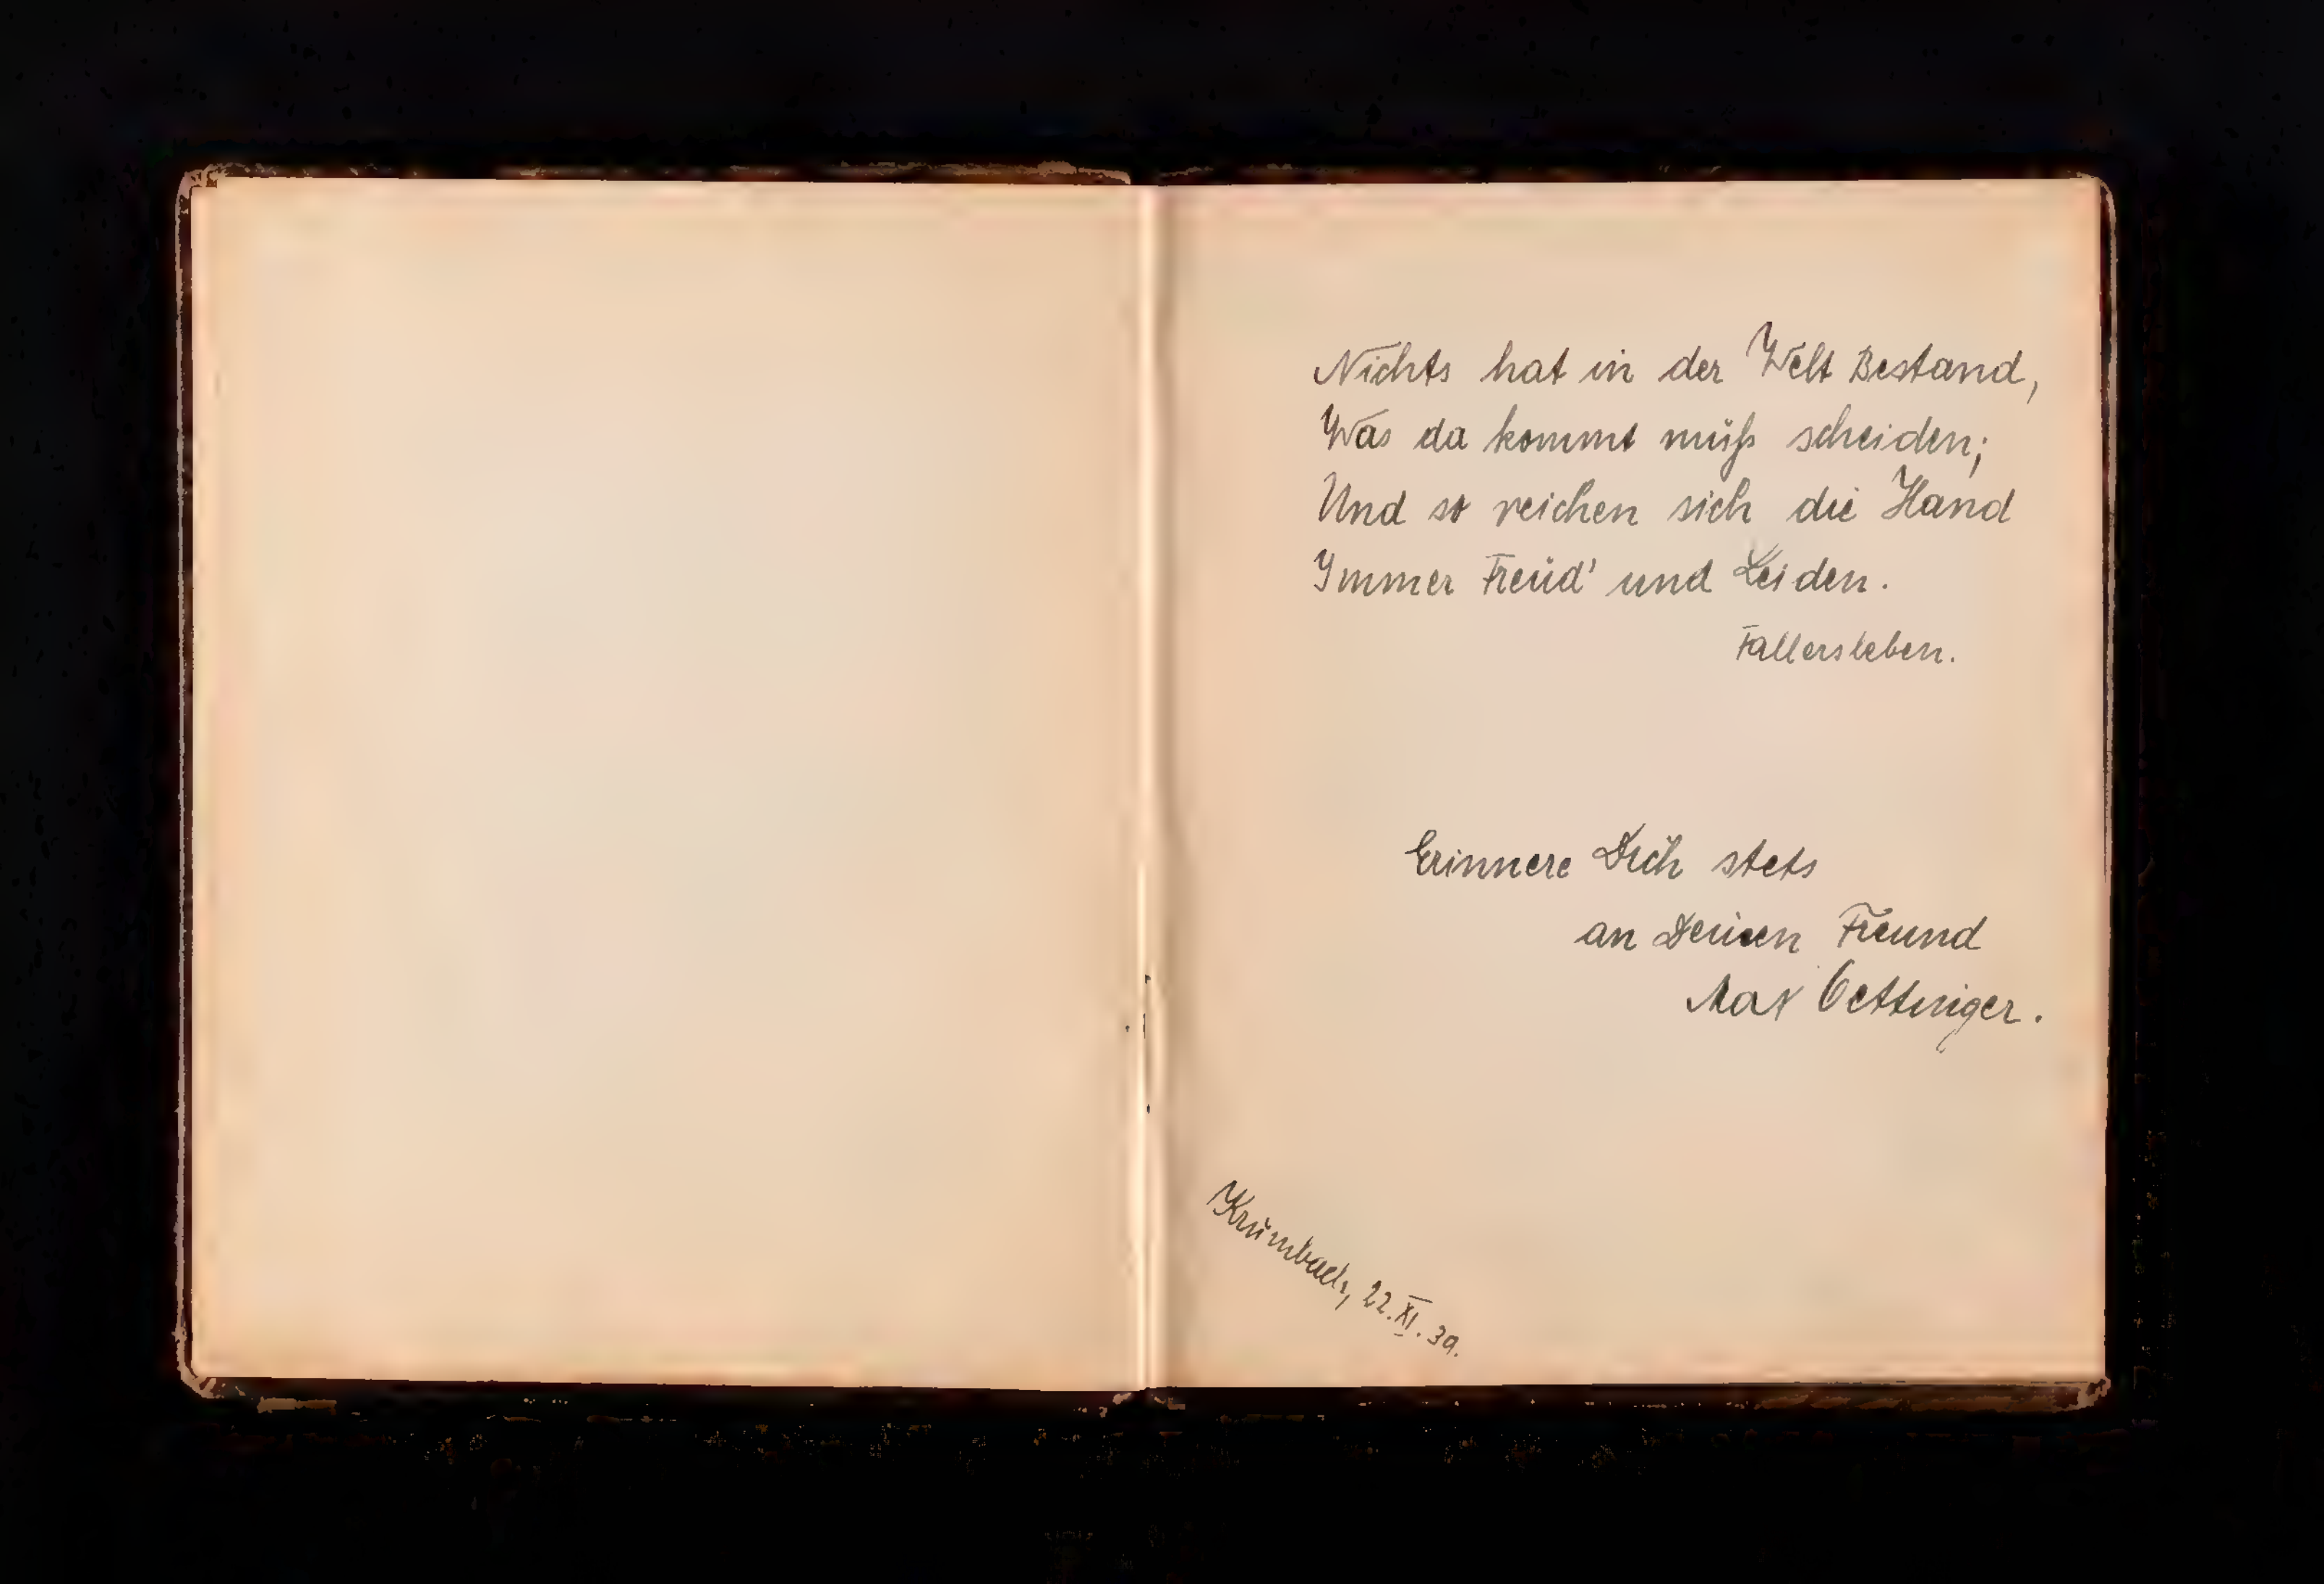 Nichts hat in der Welt Bestand,
Was da kommt muß scheiden;
Und so reichen sich die Hand
Immer Freud' und Leiden.
Fallersleben.
Erinnere Dich stets
an Deinen Freund
Max Oettinger.
Krumbach, 22.XI.39.